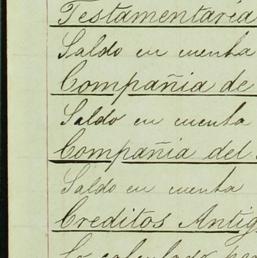 Testamentaría
Saldo en cuenta
Compañia de
Saldo en cuenta
Compañia del
Saldo en cuenta
Creditos Antig
Lo calculado